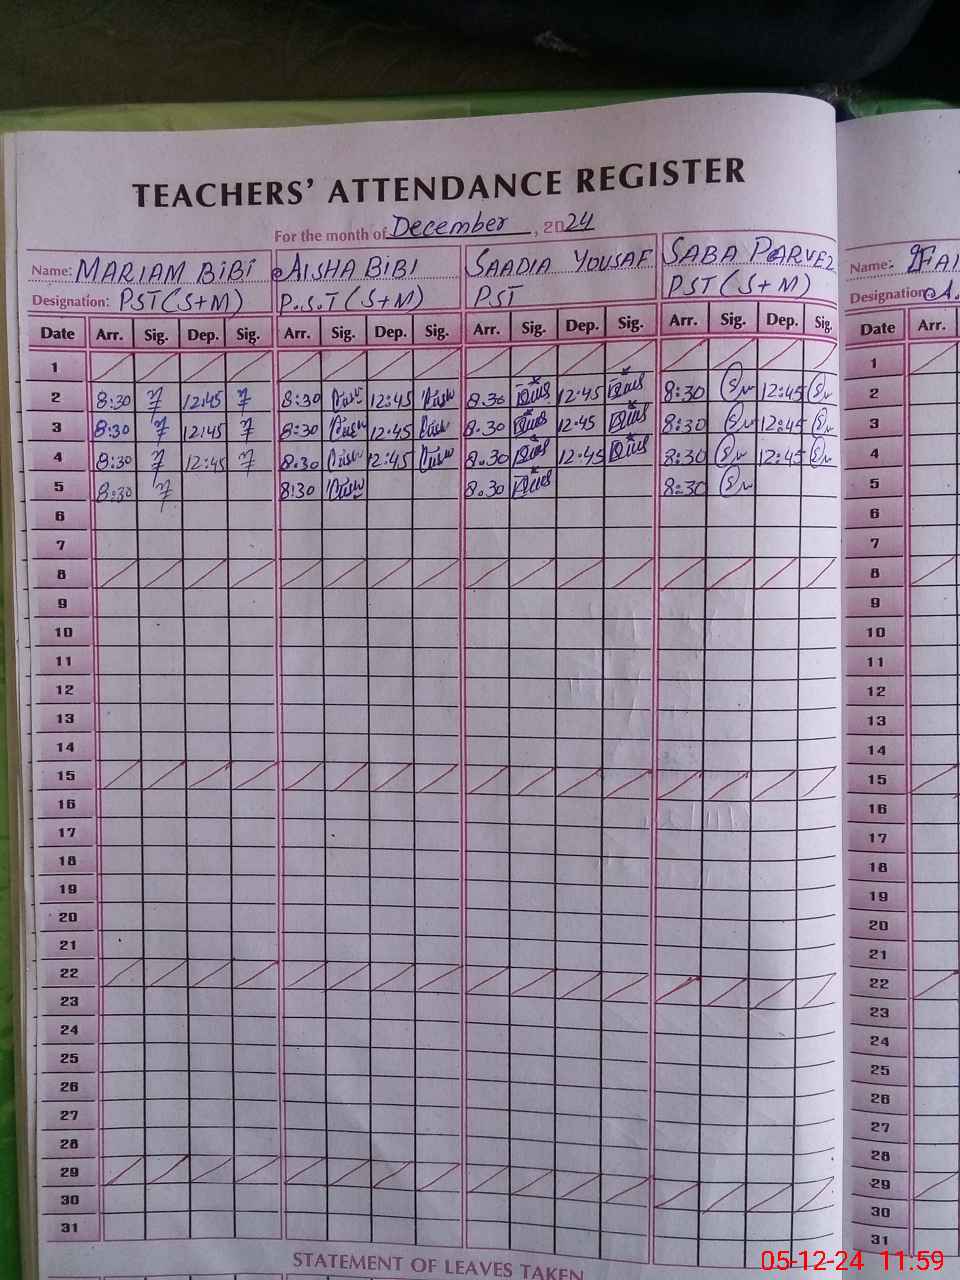 TEACHERS' ATTENDANCE REGISTER
For the month of December, 2024
Name: MARIAM BIBI AISHA BIBI SAADIA YOUSAF SABA PARVEZ Name:
Designation: PST (S+M) P.S.T (S+M) PST PST (S+M) Designation
Date Arr. Sig. Dep. Sig. Arr. Sig. Dep. Sig. Arr. Sig. Dep. Sig. Arr. Sig. Dep. Sig. Date Arr.
1 1
2 8:30 12:45 8:30 12:45 8.30 12:45 8:30 12:45 2
3 8:30 12:45 8:30 12:45 8.30 12.45 8:30 12:45 3
4 8:30 12:45 8.30 12:45 8.30 12:45 8:30 12:45 4
5 8:30 8:30 8.30 8:30 5
6 6
7 7
8 8
9 9
10 10
11 11
12 12
13 13
14 14
15 15
16 16
17 17
18 18
19 19
20 20
21 21
22 22
23 23
24 24
25 25
26 26
27 27
28 28
29 29
30 30
31 31
STATEMENT OF LEAVES TAKEN
05-12-24 11:59